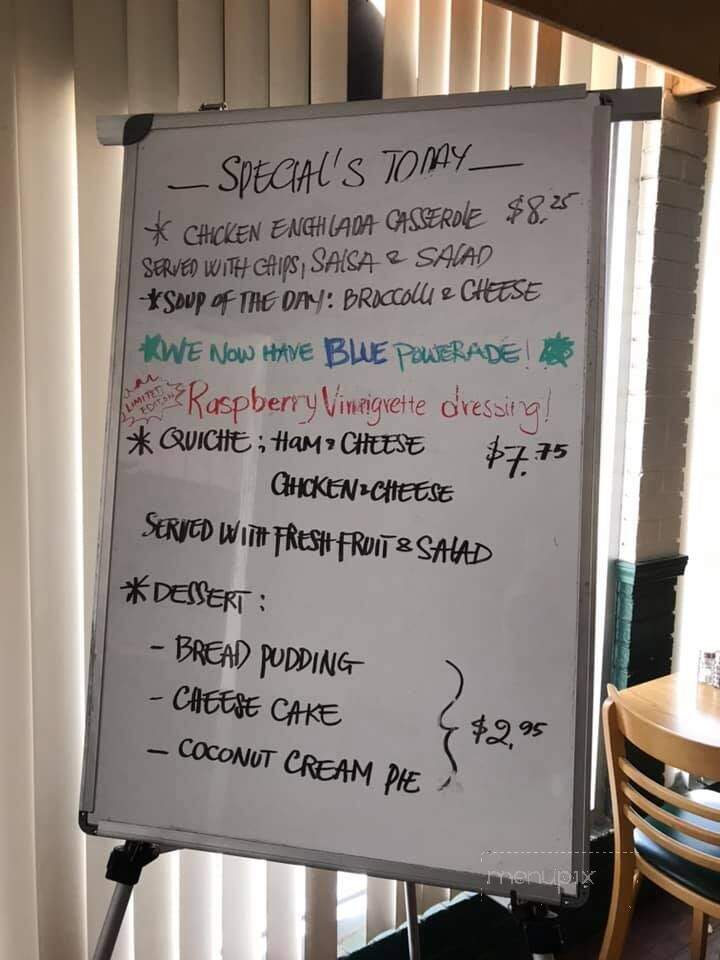 — SPECIAL'S TODAY —
* CHICKEN ENCHILADA CASSEROLE $8.25
SERVED WITH CHIPS, SALSA & SALAD
* SOUP OF THE DAY: BROCCOLLI & CHEESE
* WE NOW HAVE BLUE POWERADE! *
LIMITED EDITION Raspberry Vinaigrette dressing!
* QUICHE; HAM & CHEESE $7.75
CHICKEN & CHEESE
SERVED WITH FRESH FRUIT & SALAD
* DESSERT:
- BREAD PUDDING
- CHEESE CAKE
- COCONUT CREAM PIE
} $2.95
menupix